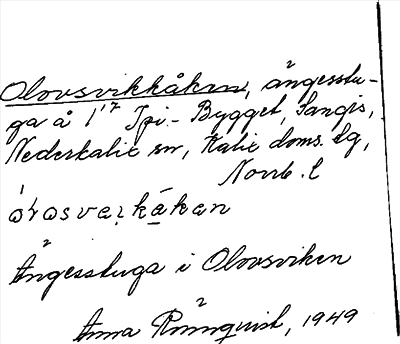 Olovsvikkåken, ängesstu-
ga å 1¹⁷ Jpi.- Bygget, Sangis,
Nederkalix sn, Kalix doms. lg,
Norrb. l
Ängesstuga i Olovsviken
Anna Rönnquist, 1949